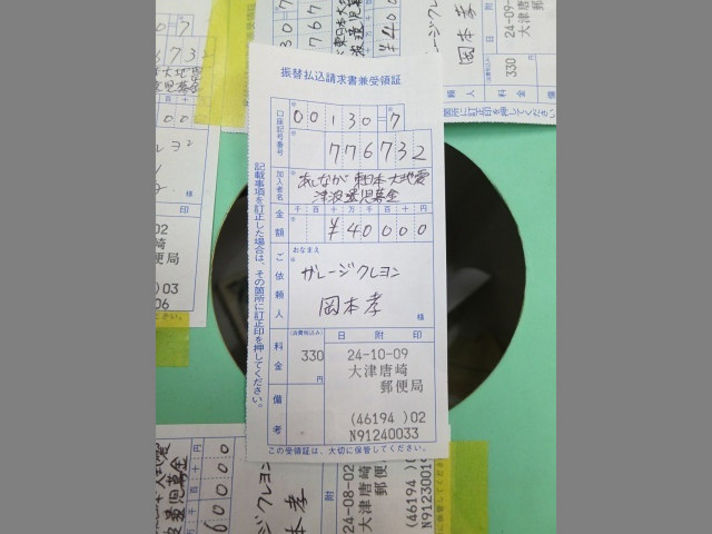 振替払込請求書兼受領証
口座記号番号
00130-7
776732
加入者名
あしなが東日本大地震
津波遺児募金
金額
千百十万千百十円
¥40000
ご依頼人
おなまえ
ガレージクレヨン
岡本孝
様
料金
(消費税込み)
330
円
日附印
24-10-09
大津唐崎
郵便局
備考
(46194 )02
N91240033
記載事項を訂正した場合は、その箇所に訂正印を押してください。
この受領証は、大切に保管してください。
24-09-
大津唐崎
郵便局
330
円
岡本孝
料金
6732
様
印
-02
唐崎
郵便局
)03
06
千百十円
60000
ジクレヨン
本孝
附
24-08-02
大津唐崎
郵便局
(46194 )0
N9123001